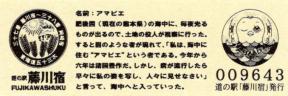 道の駅 藤川宿
FUJIKAWASHUKU
名前：アマビエ
肥後国（現在の熊本県）の海中に、毎夜光る
ものが出るので、土地の役人が視察に行った。
すると図のような者が現れて、「私は、海中に
住む“アマビエ”という者である。今年から
六年は諸国豊作だ。しかし、病が流行したら
早々に私の姿を写し、人々に見せなさい」
と言って、海中へと入っていった。
009643
道の駅「藤川宿」発行